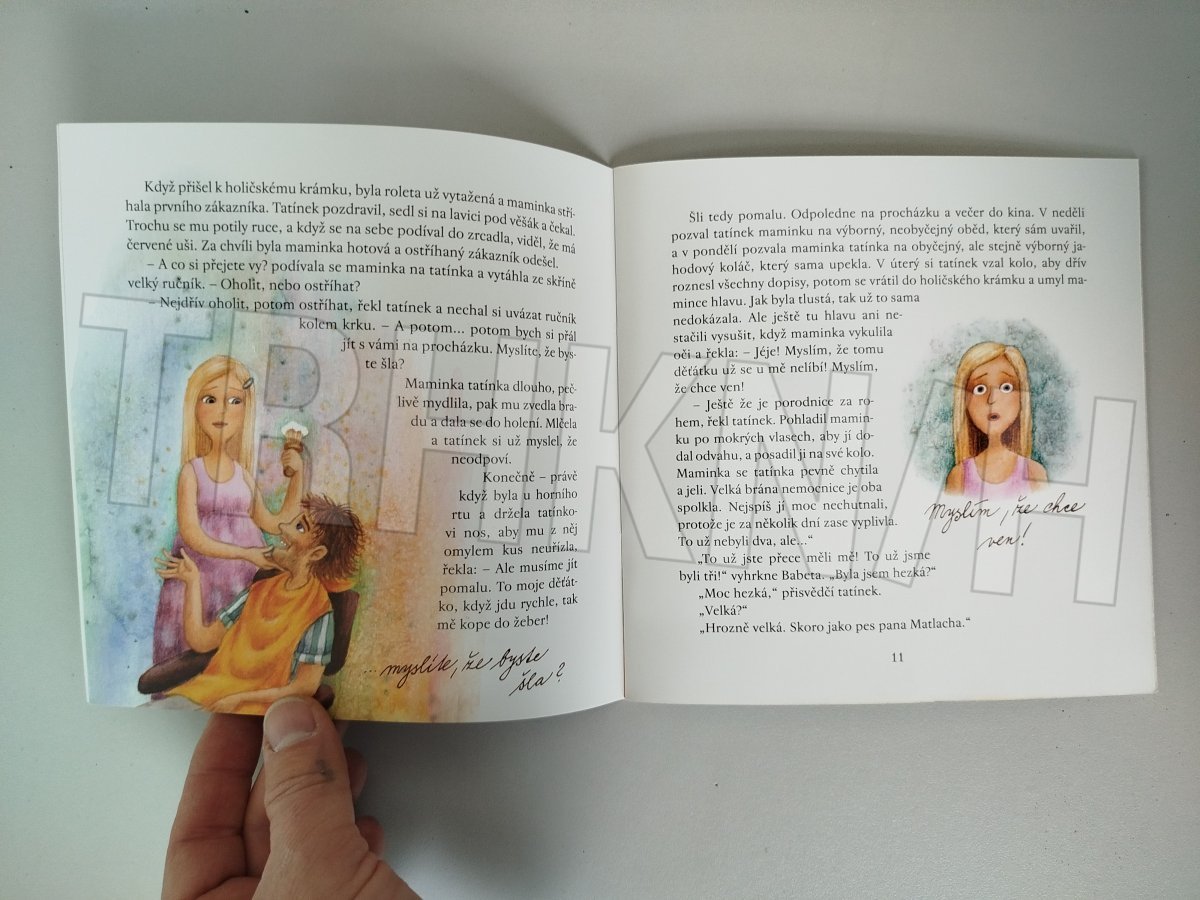 Když přišel k holičskému krámku, byla roleta už vytažená a maminka stří-
hala prvního zákazníka. Tatínek pozdravil, sedl si na lavici pod věšák a čekal.
Trochu se mu potily ruce, a když se na sebe podíval do zrcadla, viděl, že má
červené uši. Za chvíli byla maminka hotová a ostříhaný zákazník odešel.
– A co si přejete vy? podívala se maminka na tatínka a vytáhla ze skříně
velký ručník. – Oholit, nebo ostříhat?
– Nejdřív oholit, potom ostříhat, řekl tatínek a nechal si uvázat ručník
kolem krku. – A potom… potom bych si přál
jít s vámi na procházku. Myslíte, že bys-
te šla?
Maminka tatínka dlouho, peč-
livě mydlila, pak mu zvedla bra-
du a dala se do holení. Mlčela
a tatínek si už myslel, že
neodpoví.
Konečně – právě
když byla u horního
rtu a držela tatínko-
vi nos, aby mu z něj
omylem kus neuřízla,
řekla: – Ale musíme jít
pomalu. To moje děťát-
ko, když jdu rychle, tak
mě kope do žeber!
... myslíte, že byste
šla?
Šli tedy pomalu. Odpoledne na procházku a večer do kina. V neděli
pozval tatínek maminku na výborný, neobyčejný oběd, který sám uvařil,
a v pondělí pozvala maminka tatínka na obyčejný, ale stejně výborný ja-
hodový koláč, který sama upekla. V úterý si tatínek vzal kolo, aby dřív
roznesl všechny dopisy, potom se vrátil do holičského krámku a umyl ma-
mince hlavu. Jak byla tlustá, tak už to sama
nedokázala. Ale ještě tu hlavu ani ne-
stačili vysušit, když maminka vykulila
oči a řekla: – Jéje! Myslím, že tomu
děťátku už se u mě nelíbí! Myslím,
že chce ven!
– Ještě že je porodnice za ro-
hem, řekl tatínek. Pohladil mamin-
ku po mokrých vlasech, aby jí do-
dal odvahu, a posadil ji na své kolo.
Maminka se tatínka pevně chytila
a jeli. Velká brána nemocnice je oba
spolkla. Nejspíš jí moc nechutnali,
protože je za několik dní zase vyplivla.
To už nebyli dva, ale...“
„To už jste přece měli mě! To už jsme
byli tři!“ vyhrkne Babeta. „Byla jsem hezká?“
„Moc hezká,“ přisvědčí tatínek.
„Velká?“
„Hrozně velká. Skoro jako pes pana Matlacha.“
Myslím, že chce
ven!
11
TRHKNIH